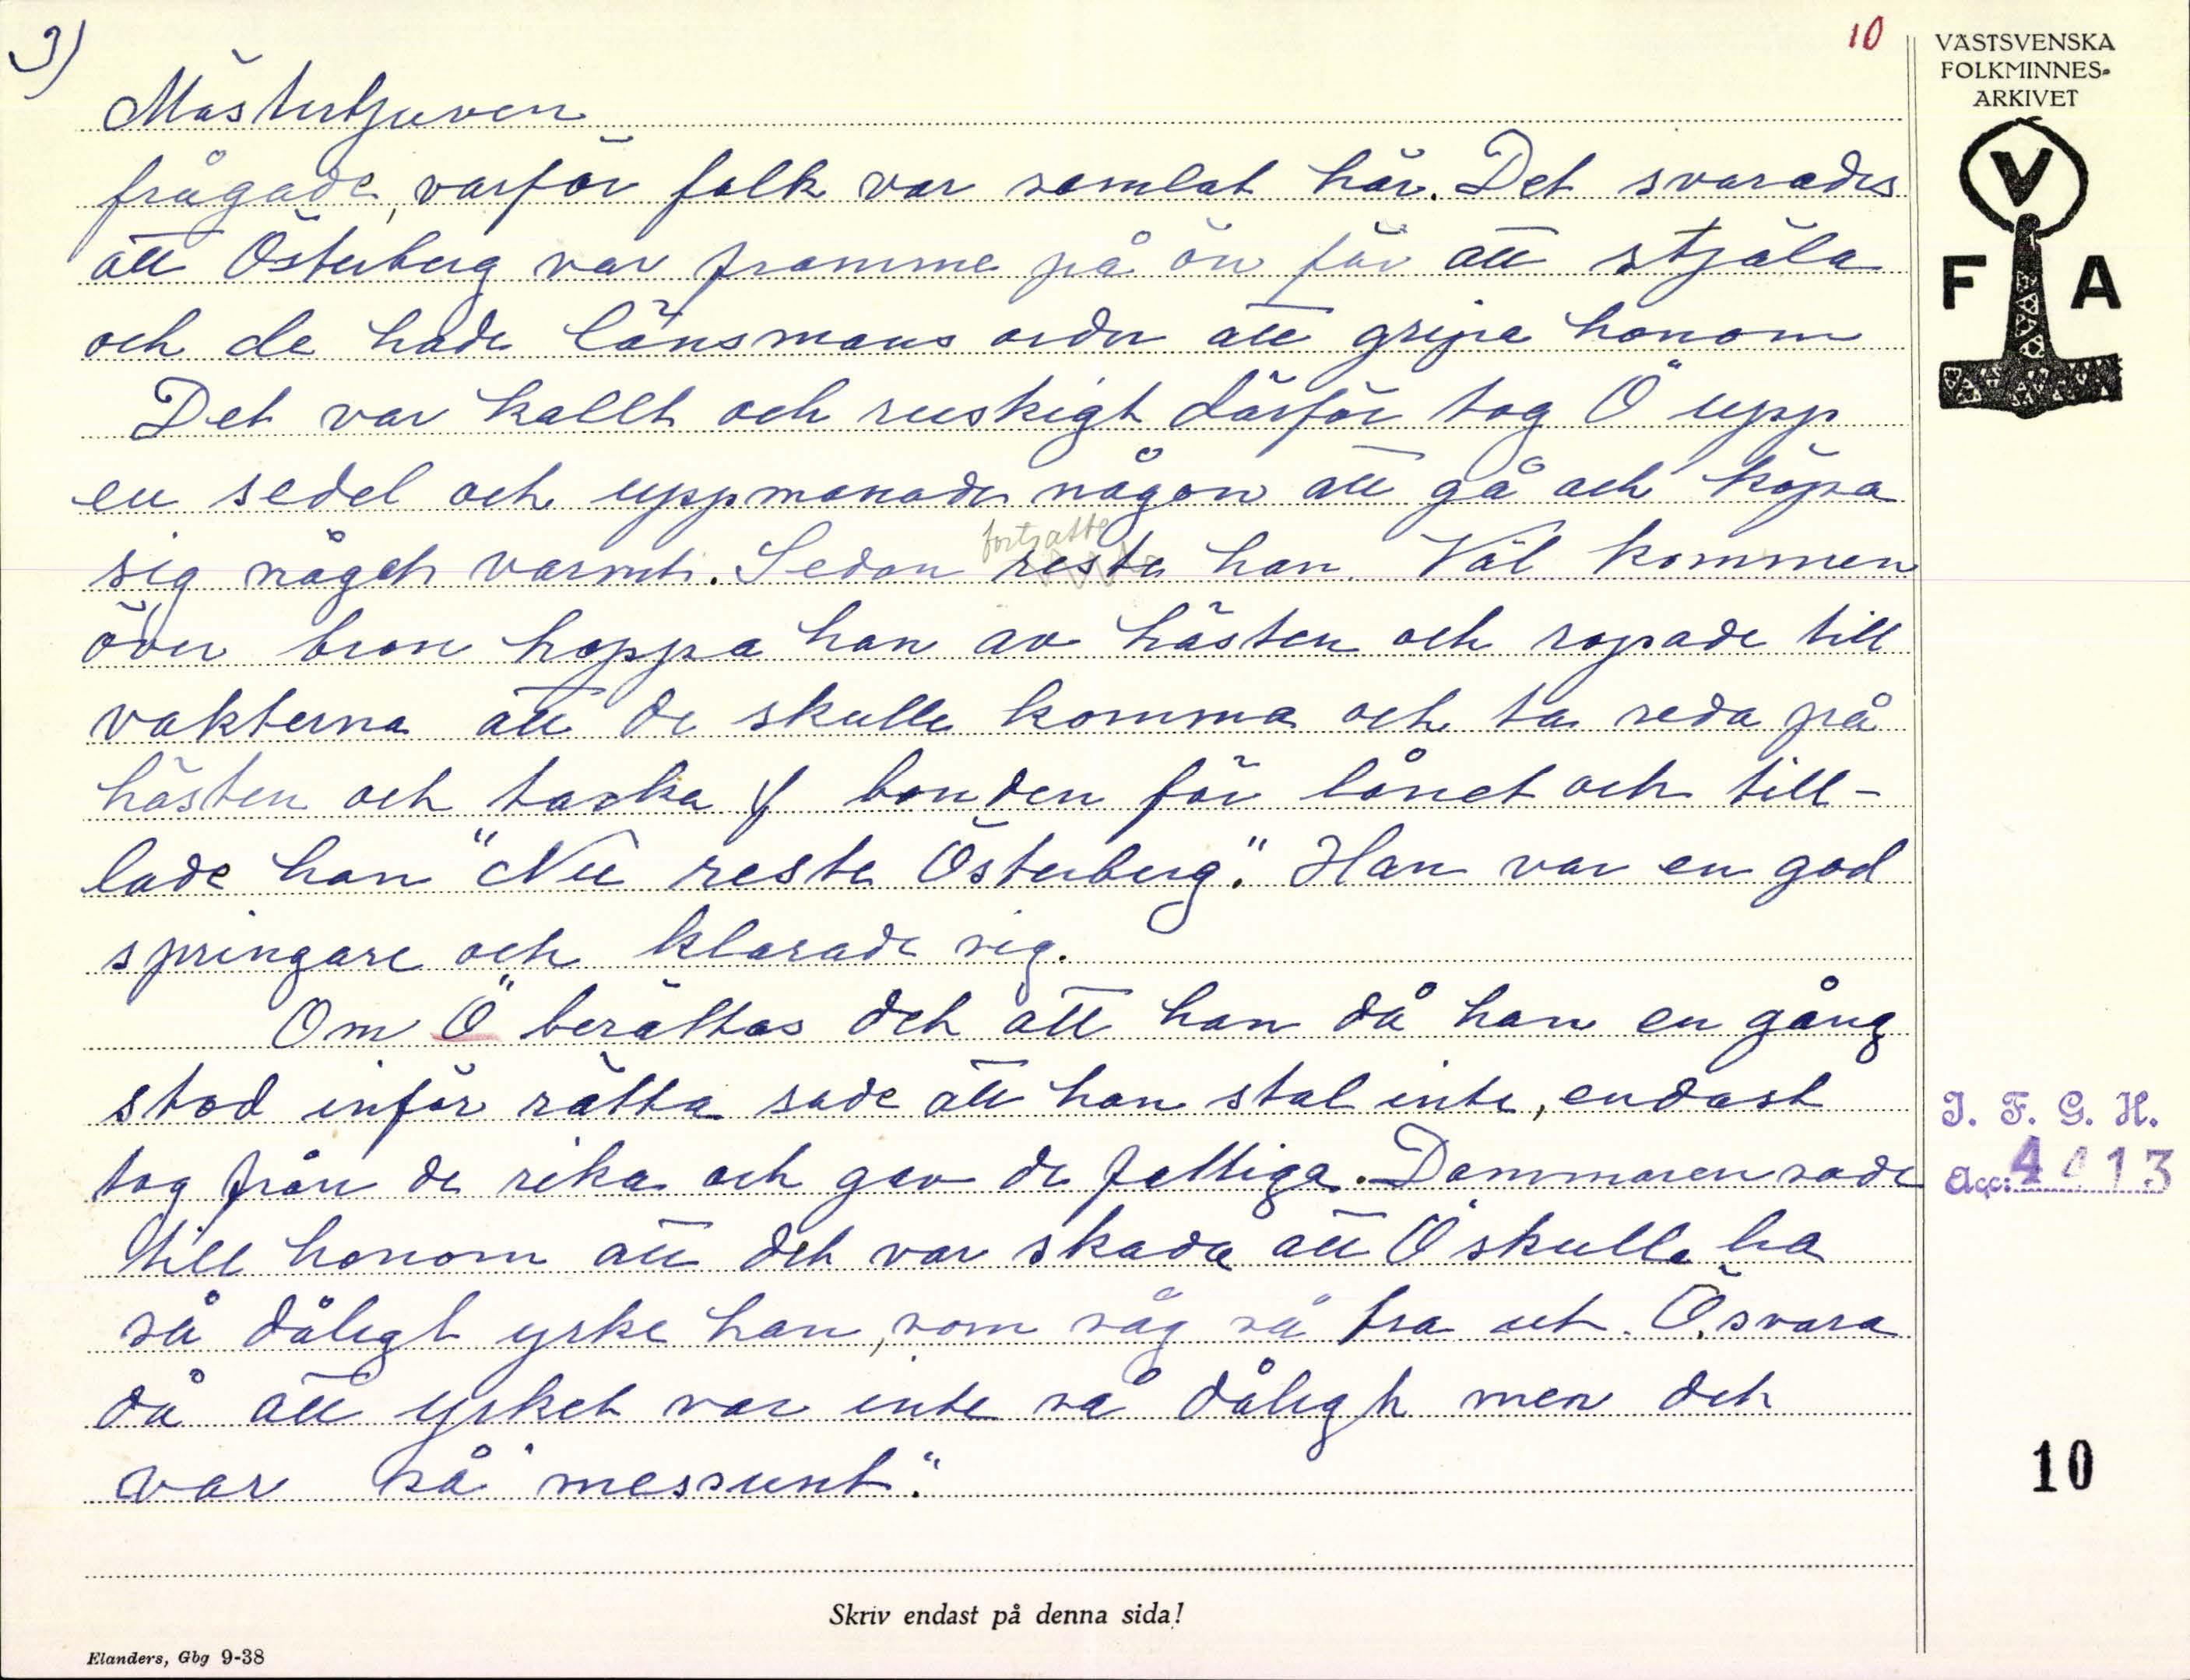 3)
10
VÄSTSVENSKA
FOLKMINNES-
ARKIVET
V
F A
Mästertjuven
frågade, varför folk var samlat här. Det svarades
att Österberg var framme på ön för att stjäla
och de hade länsmans order att gripa honom
Det var kallt och ruskigt därför tog Ö upp
en sedel och uppmanade någon att gå och köpa
sig något varmt. Sedan reste han. Väl kommen
fortsatte
över bron hoppa han av hästen och ropade till
vakterna att de skulle komma och ta reda på
hästen och tacka bonden för lånet och till-
lade han "Nu reste Österberg". Han var en god
springare och klarade sig.
Om Ö berättas det att han då han en gång
stod inför rätta sade att han stal inte, endast
tog från de rika och gav de fattiga. Dommaren sade
till honom att det var skada att Ö skulle ha
så dåligt yrke han, som såg så bra ut. Ö. svara
då att yrket var inte så dåligt men det
var så "messunt".
I. F. G. H.
Acc: 4413
10
Skriv endast på denna sida!
Elanders, Gbg 9-38